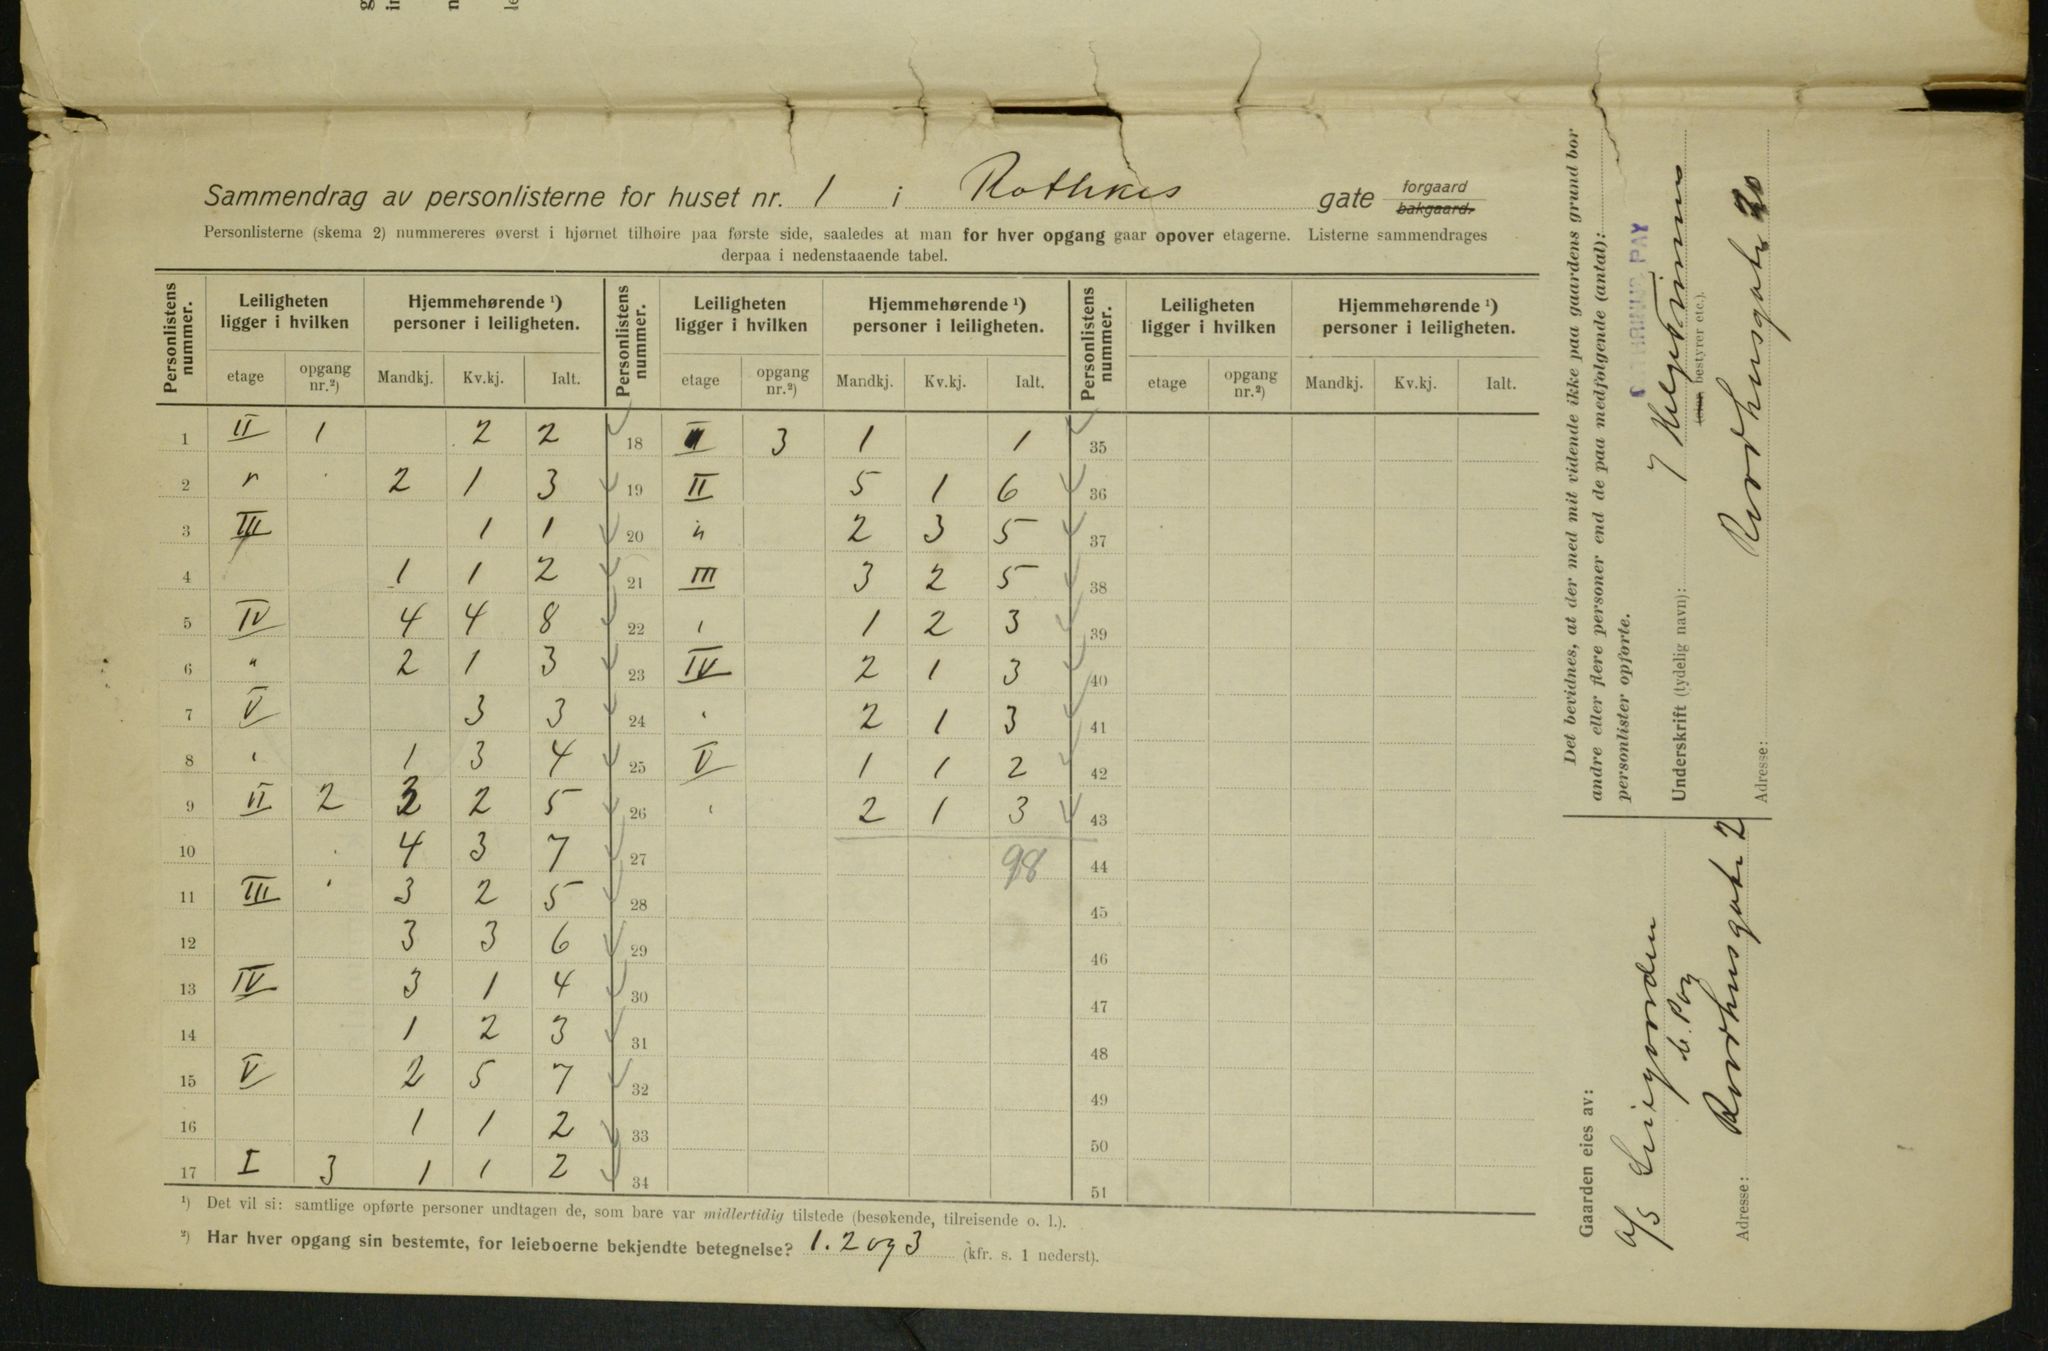 Sammendrag av personlisterne for huset nr. 1 i Rathkes gate forgaard bakgaard.
Personlisterne (skema 2) nummereres øverst i hjørnet tilhøire paa første side, saaledes at man for hver opgang gaar opover etagerne. Listerne sammendrages
derpaa i nedenstaaende tabel.
Personlistens nummer. Leiligheten ligger i hvilken Hjemmehørende ¹) personer i leiligheten. Personlistens nummer. Leiligheten ligger i hvilken Hjemmehørende ¹) personer i leiligheten. Personlistens nummer. Leiligheten ligger i hvilken Hjemmehørende ¹) personer i leiligheten.
etage opgang nr.²) Mandkj. Kv.kj. Ialt. etage opgang nr.²) Mandkj. Kv.kj. Ialt. etage opgang nr.²) Mandkj. Kv.kj. Ialt.
1 II 1 2 2 18 II 3 1 1 35
2 " 2 1 3 19 II 5 1 6 36
3 III 1 1 20 " 2 3 5 37
4 1 1 2 21 III 3 2 5 38
5 IV 4 4 8 22 " 1 2 3 39
6 " 2 1 3 23 IV 2 1 3 40
7 V 3 3 24 " 2 1 3 41
8 " 1 3 4 25 V 1 1 2 42
9 II 2 3 2 5 26 " 2 1 3 43
10 4 3 7 27 98 44
11 III 3 2 5 28 45
12 3 3 6 29 46
13 IV 3 1 4 30 47
14 1 2 3 31 48
15 V 2 5 7 32 49
16 1 1 2 33 50
17 I 3 1 1 2 34 51
¹) Det vil si: samtlige opførte personer undtagen de, som bare var midlertidig tilstede (besøkende, tilreisende o. l.).
²) Har hver opgang sin bestemte, for leieboerne bekjendte betegnelse? 1. 2 og 3 (kfr. s. 1 nederst).
Det bevidnes, at der med mit vidende ikke paa gaardens grund bor
andre eller flere personer end de paa medfølgende (antal):
personlister opførte.
PAY
Underskrift (tydelig navn):
bestyrer etc.).
Adresse: Raadhusgaten 20
Gaarden eies av:
A/S Leiegaarden
C. Pay
Adresse: Raadhusgaten 2